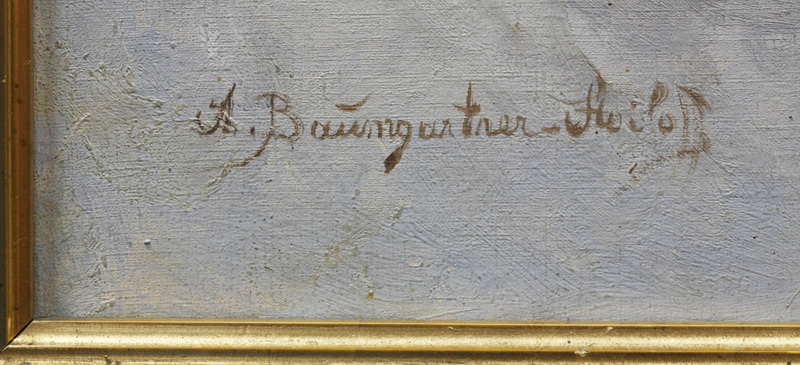 A. Baumgartner-Stoiloff